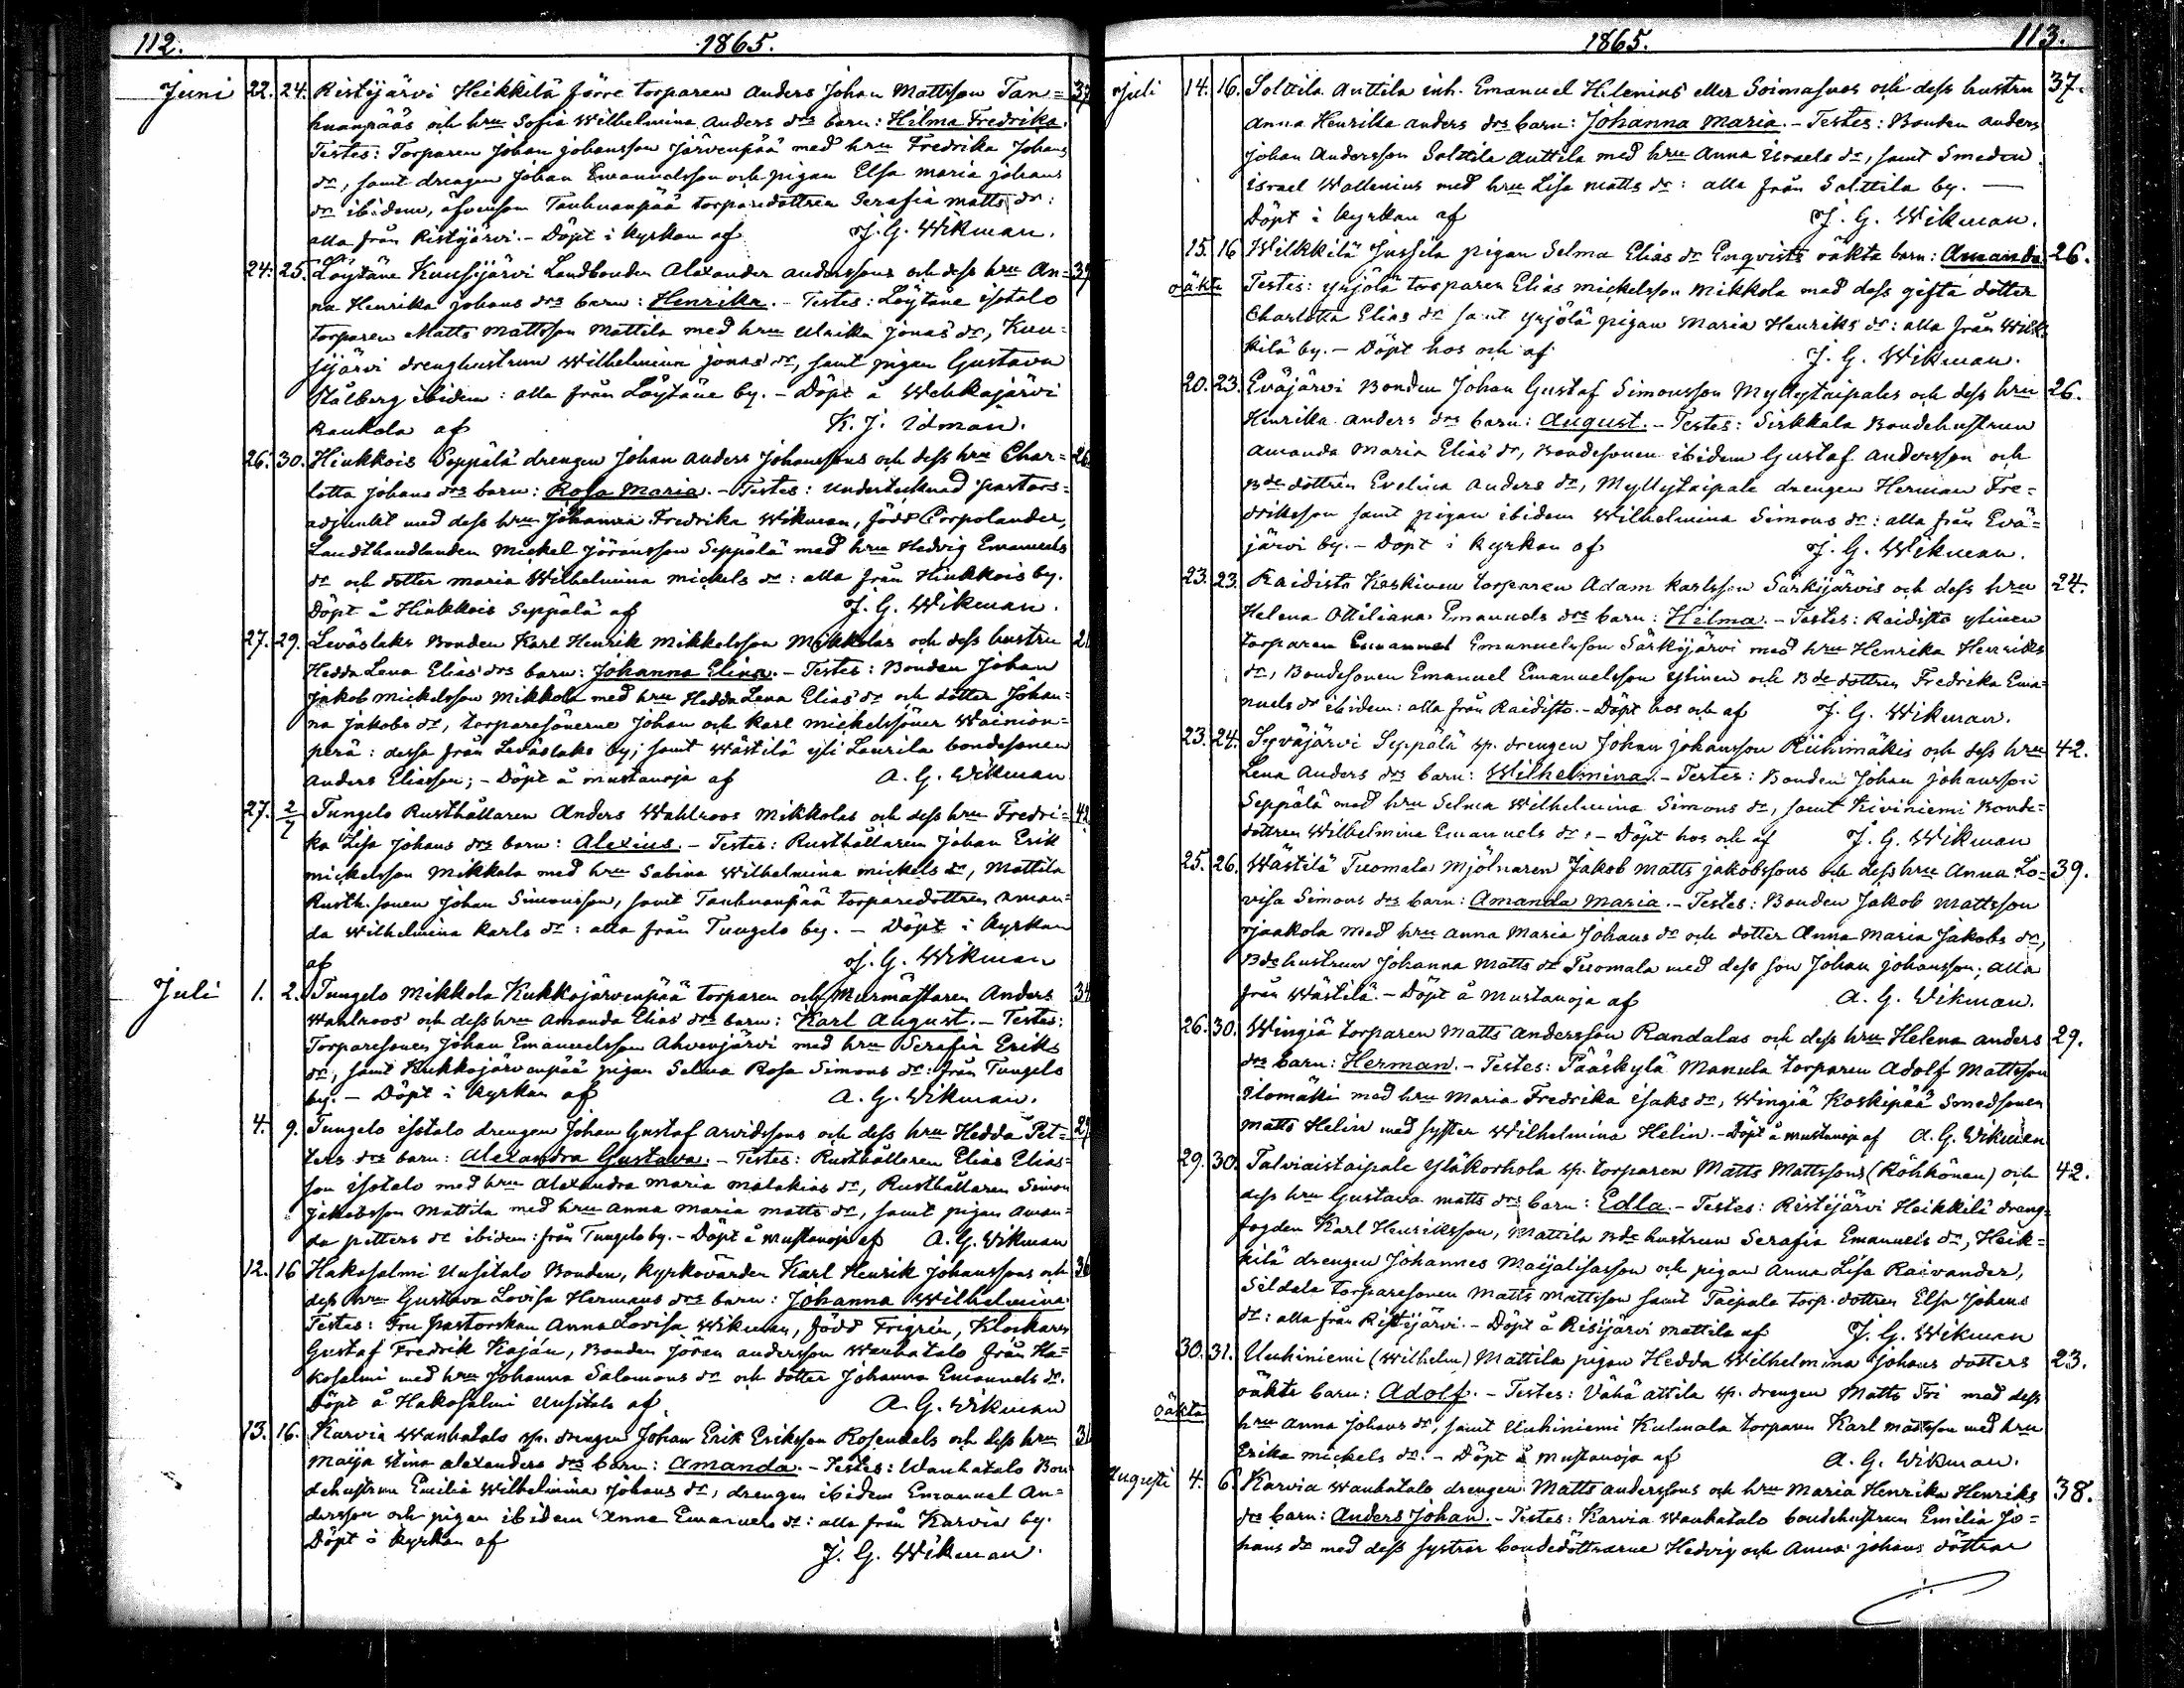 112. 1865.
Juni 22. 24. Ristijärvi Heikkilä förre torparen Anders Johan Mattsson Tan= 37
huanpääs och hru Sofia Wilhelmina Anders drs barn: Hilma Fredrika.
Testes: Torparen Johan Johansson Järvenpää med hru Fredrika Johans
dr, samt drengen Johan Emanuelsson och pigan Elsa Maria Johans
dr ibidem, äfvensom Tanhuanpää torparedottren Serafia Matts dr:
alla från Ristijärvi. - Döpt i kyrkan af J. G. Wikman.
24. 25. Löytäne Kuusijärvi Landbonden Alexander Anderssons och dess hru An= 39
na Henrika Johans drs barn: Henrika. - Testes: Löytäne Isotalo
torparen Matts Mattsson Mattila med hru Ulrika Jonas dr, Kuu=
sijärvi drenghustrun Wilhelmina Jonas dr, samt pigan Gustava
Stålberg ibidem: alla från Löytäne by. - Döpt å Wehkajärvi
Raukola af K. J. Idman.
26. 30. Hinkkois Seppälä drengen Johan Anders Johanssons och dess hru Char= 26
lotta Johans drs barn: Rosa Maria. - Testes: Undertecknad pastors=
adjunkt med dess hru Johanna Fredrika Wikman, född Corpolander,
Landthandlanden Mickel Jöransson Seppälä med hru Hedvig Emanuels
dr och dotter Maria Wilhelmina Mickels dr: alla från Hinkkois by.
Döpt å Hinkkois Seppälä af J. G. Wikman.
27. 29. Leväslaks Bonden Karl Henrik Mikkelsson Mikkolas och dess hustru
Hedda Lena Elias drs barn: Johanna Elina. - Testes: Bonden Johan
Jakob Mickelsson Mikkola med hru Hedda Lena Elias dr och dotter Johan=
na Jakobs dr, torparesönerne Johan och Karl Mickelssöner Wainion=
perä: dessa från Leväslaks by; samt Wästilä Yli Laurila bondesonen
Anders Eliasson; - Döpt å Mustanoja af A. G. Wikman
27. 2/7 Tungelo Rusthållaren Anders Wahlroos Mikkolas och dess hru Fredri= 42
ka Lisa Johans drs barn: Alexius. - Testes: Rusthållaren Johan Erik
Mickelsson Mikkola med hru Sabina Wilhelmina Mickels dr, Mattila
Rusth. sonen Johan Simonsson, samt Tanhuanpää torparedottren Aman=
da Wilhelmina Karls dr: alla från Tungelo by. - Döpt i kyrkan
af J. G. Wikman
Juli 1. 2. Tungelo Mikkola Kukkojärvenpää torparen och Murmästaren Anders 34
Wahlroos' och dess hru Amanda Elias drs barn: Karl August. - Testes:
Torparesonen Johan Emanuelsson Ahvenjärvi med hru Serafia Eriks
dr, samt Kukkojärvenpää pigan Selma Rosa Simons dr: från Tungelo
by. - Döpt i kyrkan af A. G. Wikman.
4. 9. Tungelo Isotalo drengen Johan Gustaf Arvidssons och dess hru Hedda Pet= 29
ters drs barn: Alexandra Gustava. - Testes: Rusthållaren Elias Elias=
son Isotalo med hru Alexandra Maria Malakias dr, Rusthållaren Simon
Jakobsson Mattila med hru Anna Maria Matts dr, samt pigan Aman=
da Petters dr ibidem: från Tungelo by. - Döpt å Mustanoja af A. G. Wikman
12. 16 Hakosalmi Uusitalo Bonden, kyrkovärden Karl Henrik Johanssons och
dess hru Gustava Lovisa Hermans drs barn: Johanna Wilhelmina
Testes: Fru Pastorskan Anna Lovisa Wikman, född Frigrén, Klockaren
Gustaf Fredrik Kaján, Bonden Jöran Andersson Wanhatalo från Ha=
kosalmi med hru Johanna Salomons dr och dotter Johanna Emanuels dr.
Döpt å Hakosalmi Uusitalo af A. G. Wikman
13. 16. Karvia Wanhatalo sp. drengen Johan Erik Eriksson Rosendals och dess hru
Maija Stina Alexanders drs barn: Amanda. - Testes: Wanhatalo Bon
dehustrun Emilia Wilhelmina Johans dr, drengen ibidem Emanuel An=
dersson och pigan ibidem Anna Emanuels dr: alla från Karvia by.
Döpt i kyrkan af J. G. Wikman.
1865. 113.
Juli 14. 16. Solttila Anttila inh. Emanuel Hilenius' eller Soimasuos och dess hustru 37.
Anna Henrika Anders drs barn: Johanna Maria. - Testes: Bonden Anders
Johan Andersson Solttila Anttila med hru Anna Israels dr, samt Smeden
Israel Wallenius med hru Lisa Matts dr: alla från Solttila by. —
Döpt i kyrkan af J. G. Wikman.
15. 16 Wilkkilä Jussila pigan Selma Elias dr Enqvists oäkta barn: Amanda 26.
oäkta Testes: Yrjölä torparen Elias Mickelsson Mikkola med dess gifta dotter
Charlotta Elias dr samt Yrjölä pigan Maria Henriks dr: alla från Wilk=
kilä by. - Döpt hos och af J. G. Wikman.
20. 23. Eväjärvi Bonden Johan Gustaf Simonsson Myllytaipales och dess hru 26.
Henrika Anders drs barn: August. - Testes: Sirkkala Bondehustrun
Amanda Maria Elias' dr, Bondesonen ibidem Gustaf Andersson och
Bde dottren Evelina Anders dr, Myllytaipale drengen Herman Fre=
driksson samt pigan ibidem Wilhelmina Simons dr: alla från Evä=
järvi by. - Döpt i kyrkan af J. G. Wikman.
23. 23. Raidisto Keskinen torparen Adam Karlsson Särkijärvis och dess hru 24.
Helena Ottiliana Emanuels drs barn: Hilma. - Testes: Raidisto Ylinen
torparen Emanuel Emanuelsson Särkijärvi med hru Henrika Henriks
dr, Bondesonen Emanuel Emanuelsson Ylinen och Bde dottren Fredrika Ema=
nuels dr ibidem: alla från Raidisto. - Döpt hos och af J. G. Wikman.
23. 24. Syväjärvi Seppälä sp. drengen Johan Johansson Riihimäkis och dess hru 42.
Lena Anders drs barn: Wilhelmina. - Testes: Bonden Johan Johansson
Seppälä med hru Selma Wilhelmina Simons dr, samt Kiviniemi Bonde=
dottren Wilhelmina Emanuels dr. - Döpt hos och af J. G. Wikman
25. 26. Wästilä Tuomala Mjölnaren Jakob Matts Jakobssons och dess hru Anna Lo= 39.
visa Simons drs barn: Amanda Maria. - Testes: Bonden Jakob Mattsson
Jaakola med hru Anna Maria Johans dr och dotter Anna Maria Jakobs dr,
Bde hustrun Johanna Matts dr Tuomala med dess son Johan Johansson; alla
från Wästilä. - Döpt å Mustanoja af A. G. Wikman.
26. 30. Wingiä torparen Matts Andersson Randalas och dess hru Helena Anders 29.
drs barn: Herman. - Testes: Pääskylä Manula torparen Adolf Mattsson
Ilomäki med hru Maria Fredrika Isaks dr, Wingiä Koskipää Smedsonen
Matts Helin med syster Wilhelmina Helin. - Döpt å Mustanoja af A. G. Wikman
29. 30. Talviaistaipale Yläkorhola sp. torparen Matts Mattssons (Röhkönen) och 42.
dess hru Gustava Matts drs barn: Edla. - Testes: Ristijärvi Heikkilä dreng=
fogden Karl Henriksson, Mattila Bde hustrun Serafia Emanuels dr, Heik=
kilä drengen Johannes Maijalisasson och pigan Anna Lisa Raivander,
Sildala torparesonen Matts Mattsson samt Taipale torp. dottren Elsa Johans
dr: alla från Ristijärvi. - Döpt å Ristijärvi Mattila af J. G. Wikman
30. 31. Unhiniemi (Wilhelm) Mattila pigan Hedda Wilhelmina Johans dotters 23.
oäkta oäkta barn: Adolf. - Testes: Vähä attila sp. drengen Matts Fri med dess
hru Anna Johans dr, samt Unhiniemi Kulmala torparen Karl Mattsson med hru
Erika Mickels dr. - Döpt å Mustanoja af A. G. Wikman.
Augusti 4. 6. Karvia Wanhatalo drengen Matts Anderssons och hru Maria Henrika Henriks 38.
drs barn: Anders Johan. - Testes: Karvia Wanhatalo bondehustrun Emilia Jo=
hans dr med dess systrar bondedöttrarne Hedvig och Anna Johans döttrar